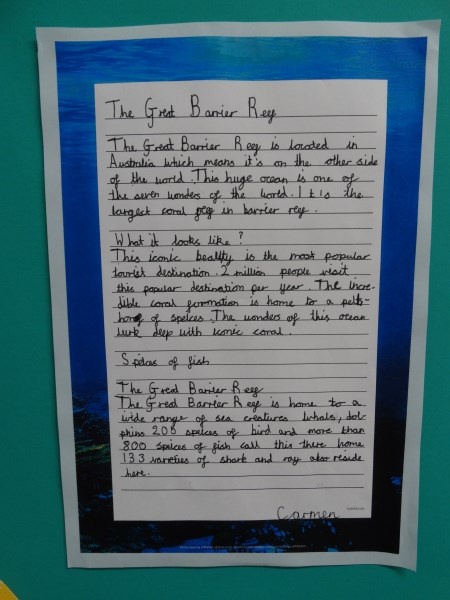 The Great Barrier Reef
The Great Barrier Reef is located in
Australia which means it's on the other side
of the world. This huge ocean is one of
the seven wonders of the world. It's the
largest coral reef in barrier reef.
What it looks like?
This iconic beality is the most popular
tourist destination. 2 million people visit
this popular destination per year. The incre-
dible coral formation is home to a peth-
hora of speices. The wonders of this ocean
lurk deep with iconic coral.
Speices of fish
The Great Barier Reef
The Great Barrier Reef is home to a
wide range of sea creatures whals, dol-
phins 205 speices of bird and more than
800 speices of fish call this there home
133 varieties of shark and ray also reside
here.
Carmen